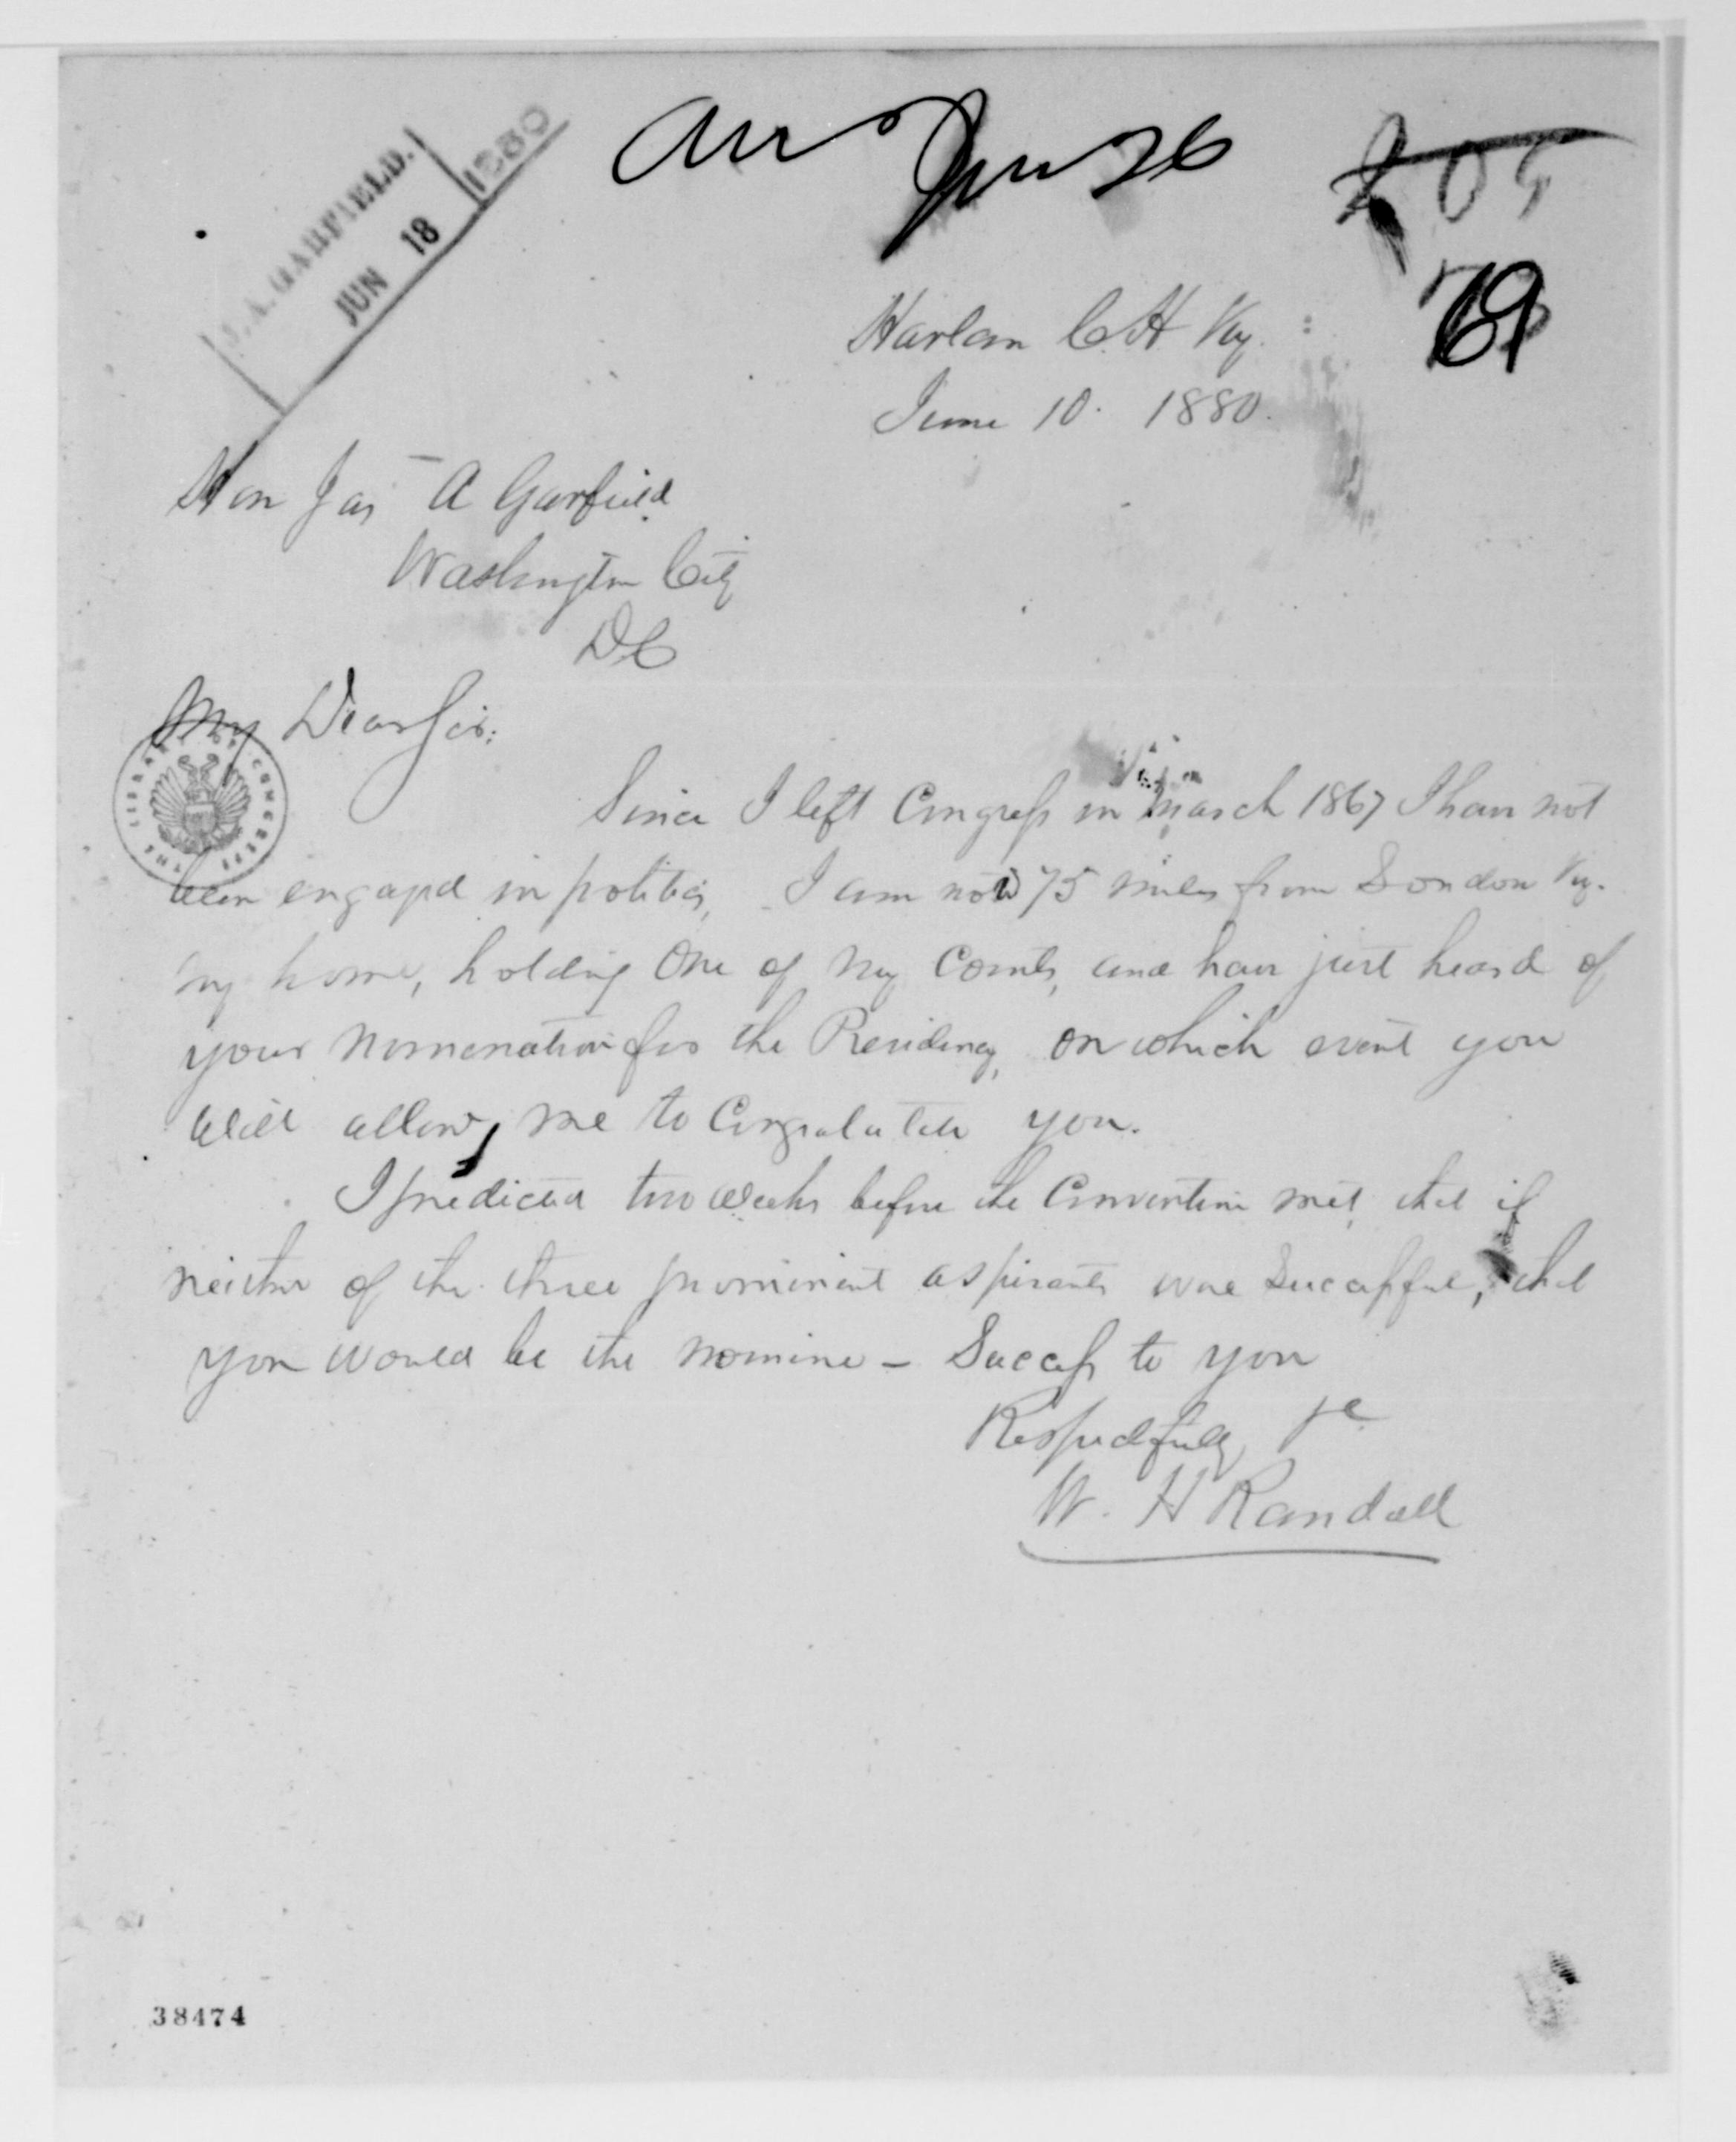 J. A. GARFIELD.
JUN 18 1880
Ans Jun 26
205
69
Harlan C.H Ky.
June 10. 1880.
Hon Jas A Garfield
Washington City
DC
My Dear Sir:
THE LIBRARY OF CONGRESS
Since I left Congress in March 1867 I have not
been engaged in politics, I am now 75 miles from London Ky.
my home, holding One of my Courts, and have just heard of
your nomination for the Presidency, on which event you
will allow me to Congratulate you.
I predicted two weeks before the Convention met, that if
neither of the three prominent aspirants were Successful, that
you would be the nominee - Success to you
Respectfully &c
W. H Randall
38474